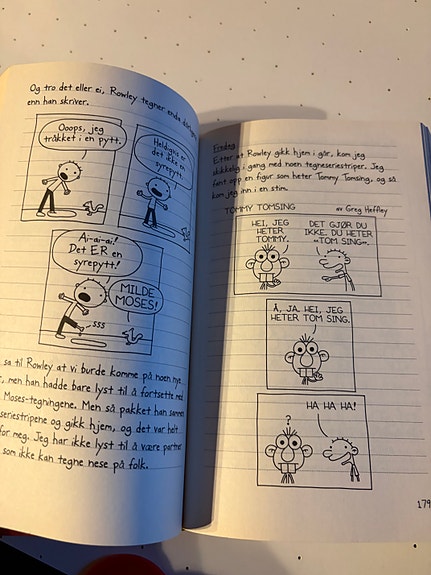 Og tro det eller ei, Rowley tegner enda dårligere
enn han skriver.
Ooops, jeg
tråkket i en pytt.
Heldigvis er
det ikke en
syrepytt.
Ai-ai-ai!
Det ER en
syrepytt!
MILDE
MOSES!
SSS
sa til Rowley at vi burde komme på noen nye
men han hadde bare lyst til å fortsette med
Moses-tegningene. Men så pakket han sammen
seriestripene og gikk hjem, og det var helt
for meg. Jeg har ikke lyst til å være partner
som ikke kan tegne nese på folk.
Fredag
Etter at Rowley gikk hjem i går, kom jeg
skikkelig i gang med noen tegneseriestriper. Jeg
fant opp en figur som heter Tommy Tomsing, og så
kom jeg inn i en stim.
TOMMY TOMSING
av Greg Heffley
HEI, JEG
HETER
TOMMY.
DET GJØR DU
IKKE. DU HETER
«TOM SING».
Å, JA. HEI, JEG
HETER TOM SING.
?
HA HA HA!
179